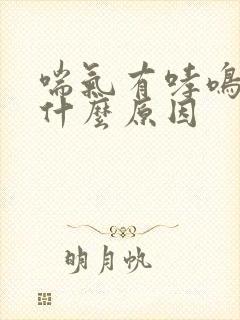 喘氣有哮鳴
什麼原因
明月帆